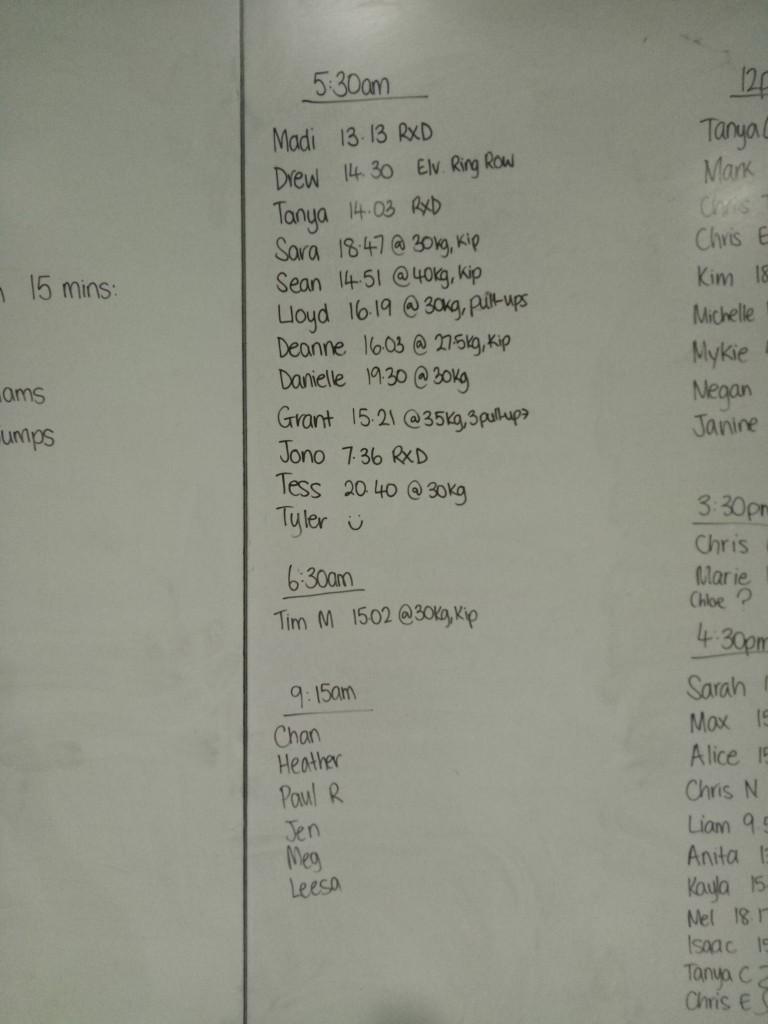 15 mins:
5:30am
Madi 13.13 RXD
Drew 14.30 Elv. Ring Row
Tanya 14.03 RXD
Sara 18.47 @ 30kg, Kip
Sean 14.51 @40kg, Kip
Lloyd 16.19 @ 30kg, pull-ups
Deanne 16.03 @ 27.5kg, Kip
Danielle 19.30 @ 30kg
Grant 15.21 @35kg, 3 pull-ups
Jono 7.36 RXD
Tess 20.40 @ 30kg
Tyler
6:30am
Tim M 15.02 @30kg, Kip
9:15am
Chan
Heather
Paul R
Jen
Meg
Leesa
Tanya
Mark
Chris
Chris E
Kim 18
Michelle
Mykie
Megan
Janine
3:30pm
Chris
Marie
Chloe ?
4:30pm
Sarah
Max 15
Alice 15
Chris N
Liam 9.5
Anita
Kayla 15
Mel 18.17
Isaac 15
Tanya C
Chris E